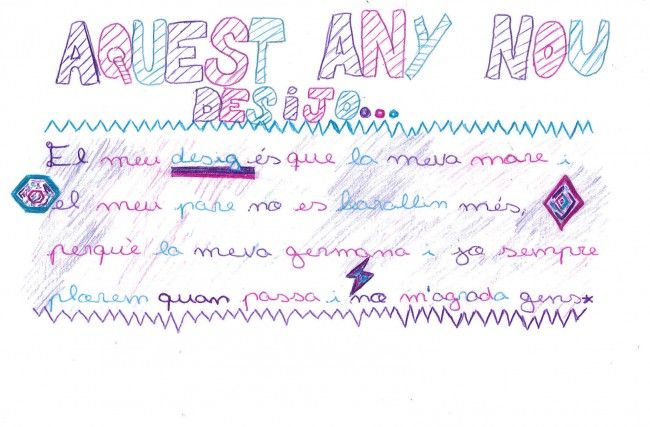 AQUEST ANY NOU
DESIJO...
El meu desig és que la meva mare i
el meu pare no es barallin més,
perquè la meva germana i jo sempre
plorem quan passa i no m'agrada gens*